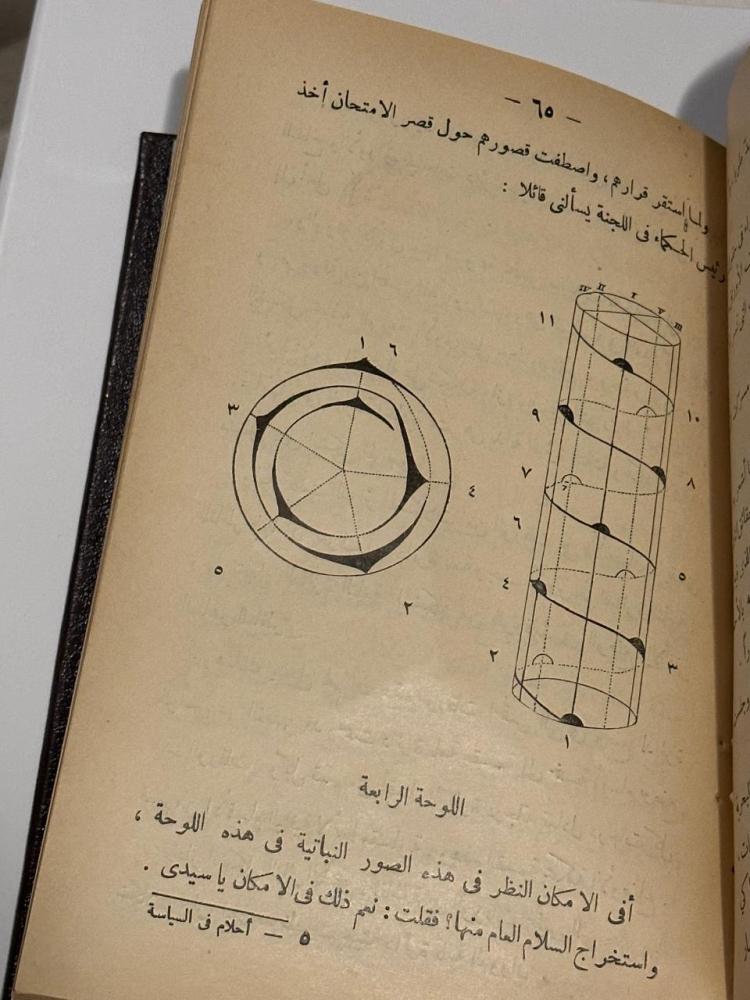 — ٦٥ —
ولما استقر قرارهم، واصطفت قصورهم حول قصر الامتحان أخذ
رئيس الحكماء فى اللجنة يسألنى قائلا :
١ ٦
٣
٤
٥
٢
I
V
III
١١
١٠
٩
٨
٧
٦
٥
٤
٣
٢
١
اللوحة الرابعة
أفى الامكان النظر فى هذه الصور النباتية فى هذه اللوحة ،
واستخراج السلام العام منها؟ فقلت : نعم ذلك فى الامكان يا سيدى .
٥ — أحلام فى السياسة